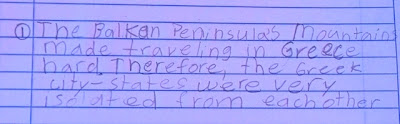 ① The Balkan Peninsula's Mountains
made traveling in Greece
hard. Therefore, the Greek
city-states were very
isolated from each other